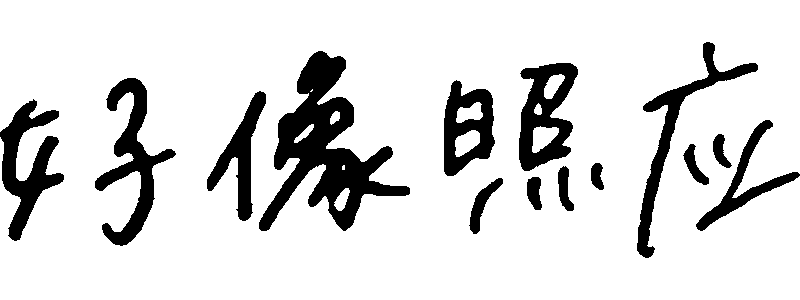 好像照应